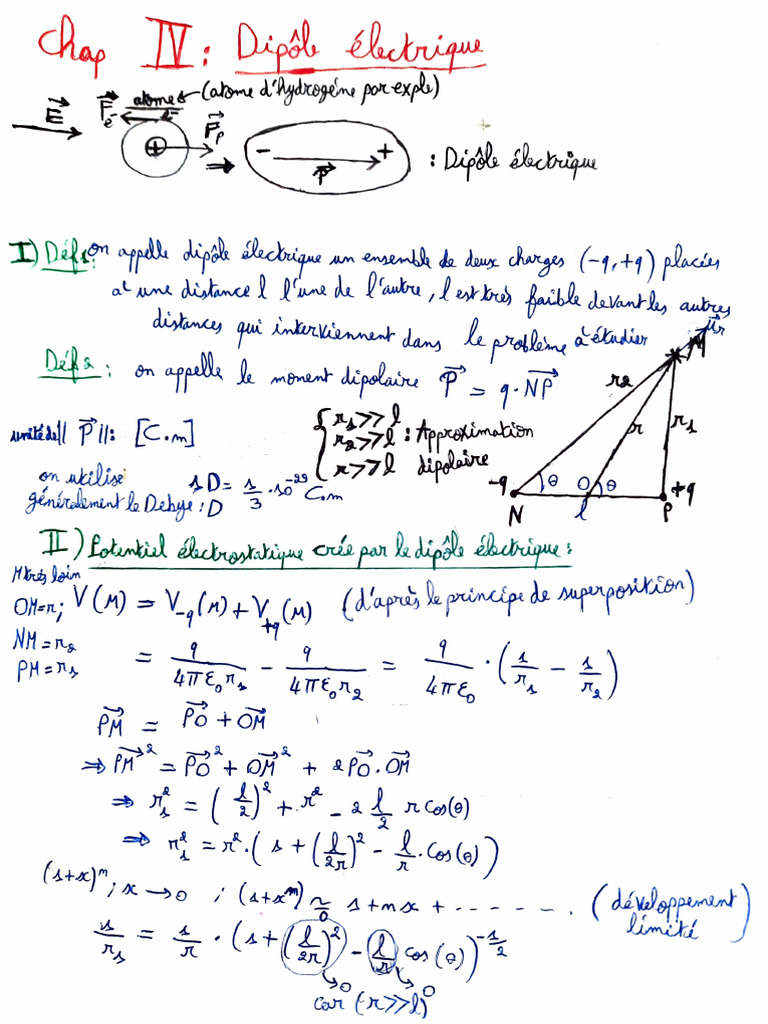 Chap IV : Dipôle électrique
(atome d'hydrogéne par exple)
atome
E→ F→e- e- + F→p ⇒ - P→ + : Dipôle électrique
I) Déf1: on appelle dipôle électrique un ensemble de deux charges (-q, +q) placées
à une distance l l'une de l'autre, l est très faible devant les autres
distances qui interviennent dans le problème à étudier
Déf2 : on appelle le moment dipolaire P→ = q·NP→
unité de ||P→||: [C.m]
{ r1>>l
r2>>l : Approximation
r>>l dipolaire
on utilise
généralement le Debye : D
1D = 1/3 · 10^-29 C.m
M u→r
r2 r r1
-q θ O θ +q
N l P
II) Potentiel électrostatique crée par le dipôle électrique :
M très loin
OM=r; V(M) = V-q(M) + V+q(M) (d'après le principe de superposition)
NM=r2
PM=r1
= q/4πε0r1 - q/4πε0r2 = q/4πε0 · (1/r1 - 1/r2)
PM→ = PO→ + OM→
⇒ PM→² = PO→² + OM→² + 2PO→·OM→
⇒ r1² = (l/2)² + r² - 2 l/2 r cos(θ)
⇒ r1² = r²·(1 + (l/2r)² - l/r · cos(θ))
(1+x)^m ; x → 0 ; (1+x^m) ~0 1+mx + ------- . (développement
limité)
1/r1 = 1/r · (1 + (l/2r)² - l/r cos(θ))^-1/2
→0 →0
car (r>>l)